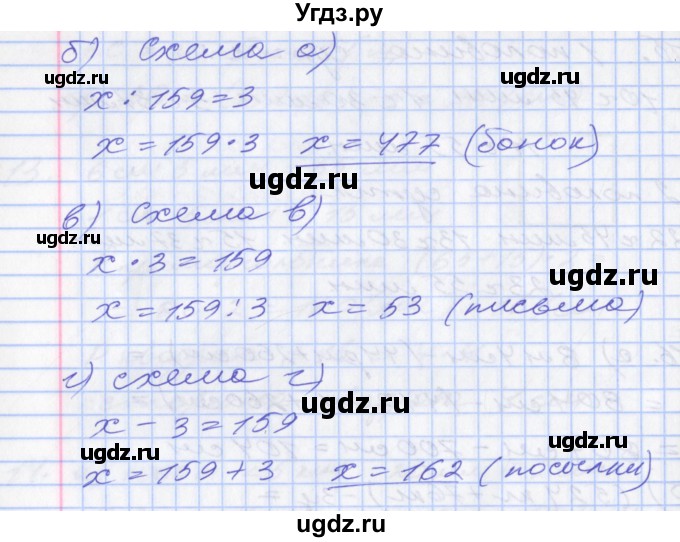 Угдз.ру
б) Схема а)
ugdz.ru ugdz.ru ugdz.ru
x : 159 = 3
x = 159 · 3 x = 477 (банок)
ugdz.ru ugdz.ru
в) Схема в)
ugdz.ru ugdz.ru
x · 3 = 159
ugdz.ru
x = 159 : 3 x = 53 (письма)
г) схема г)
ugdz.ru ugdz.ru
x - 3 = 159
ugdz.ru ugdz.ru
x = 159 + 3 x = 162 (посылки)
ugdz.ru